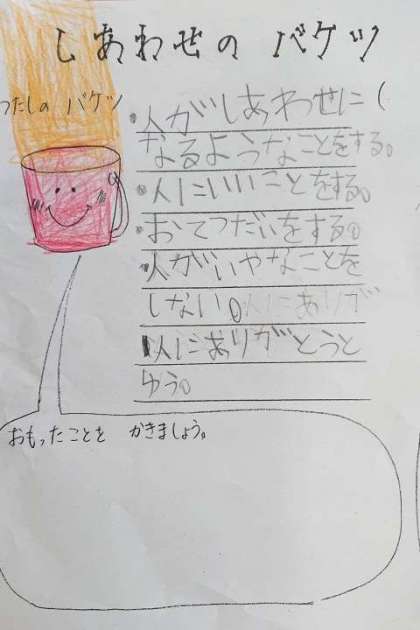 しあわせの バケツ
わたしの バケツ
・人がしあわせに
なるようなことをする。
・人にいいことをする。
・おてつだいをする。
・人がいやなことを
しない。
・人にありがとうと
ゆう。
おもったことを かきましょう。